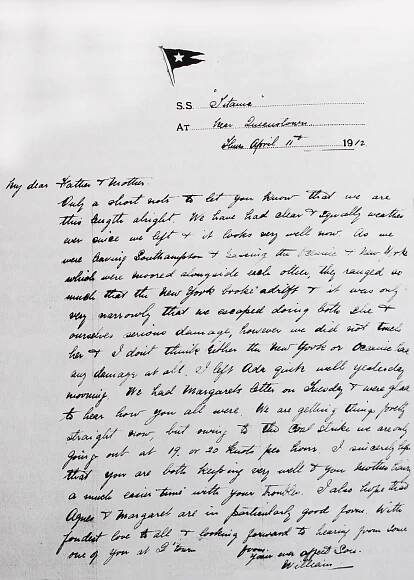 S.S. "Titanic"
AT Near Queenstown
Thurs April 11th 1912
My dear Father & Mother.
Only a short note to let you know that we are
this length alright. We have had clear & squally weather
ever since we left & it looks very well now. As we
were leaving Southampton & passing the Oceanic & New York
which were moored alongside each other they ranged so
much that the New York broke adrift & it was only
very narrowly that we escaped doing both she &
ourselves serious damage, however we did not touch
her & I don't think either the New York or Oceanic had
any damage at all. I left Ada quite well yesterday
morning. We had Margaret's letter on Tuesday & were glad
to hear how you all were. We are getting things pretty
straight now, but owing to the Coal strike we are only
going out at 19 or 20 knots per hour. I sincerely hope
that you are both keeping very well & you Mother having
a much easier time with your trouble. I also hope that
Agnes & Margaret are in particularly good form. With
fondest love to all & looking forward to hearing from some
one of you at Q'town from
Your ever affect Son.
William